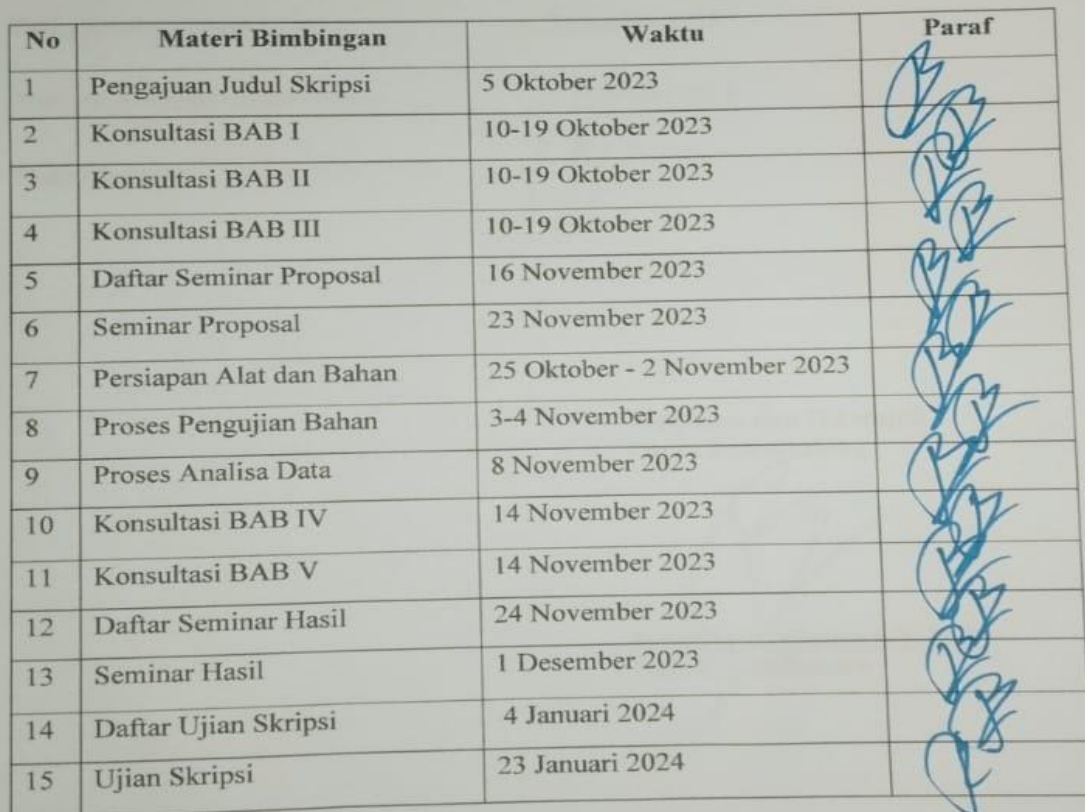 No Materi Bimbingan Waktu Paraf
1 Pengajuan Judul Skripsi 5 Oktober 2023
2 Konsultasi BAB I 10-19 Oktober 2023
3 Konsultasi BAB II 10-19 Oktober 2023
4 Konsultasi BAB III 10-19 Oktober 2023
5 Daftar Seminar Proposal 16 November 2023
6 Seminar Proposal 23 November 2023
7 Persiapan Alat dan Bahan 25 Oktober - 2 November 2023
8 Proses Pengujian Bahan 3-4 November 2023
9 Proses Analisa Data 8 November 2023
10 Konsultasi BAB IV 14 November 2023
11 Konsultasi BAB V 14 November 2023
12 Daftar Seminar Hasil 24 November 2023
13 Seminar Hasil 1 Desember 2023
14 Daftar Ujian Skripsi 4 Januari 2024
15 Ujian Skripsi 23 Januari 2024